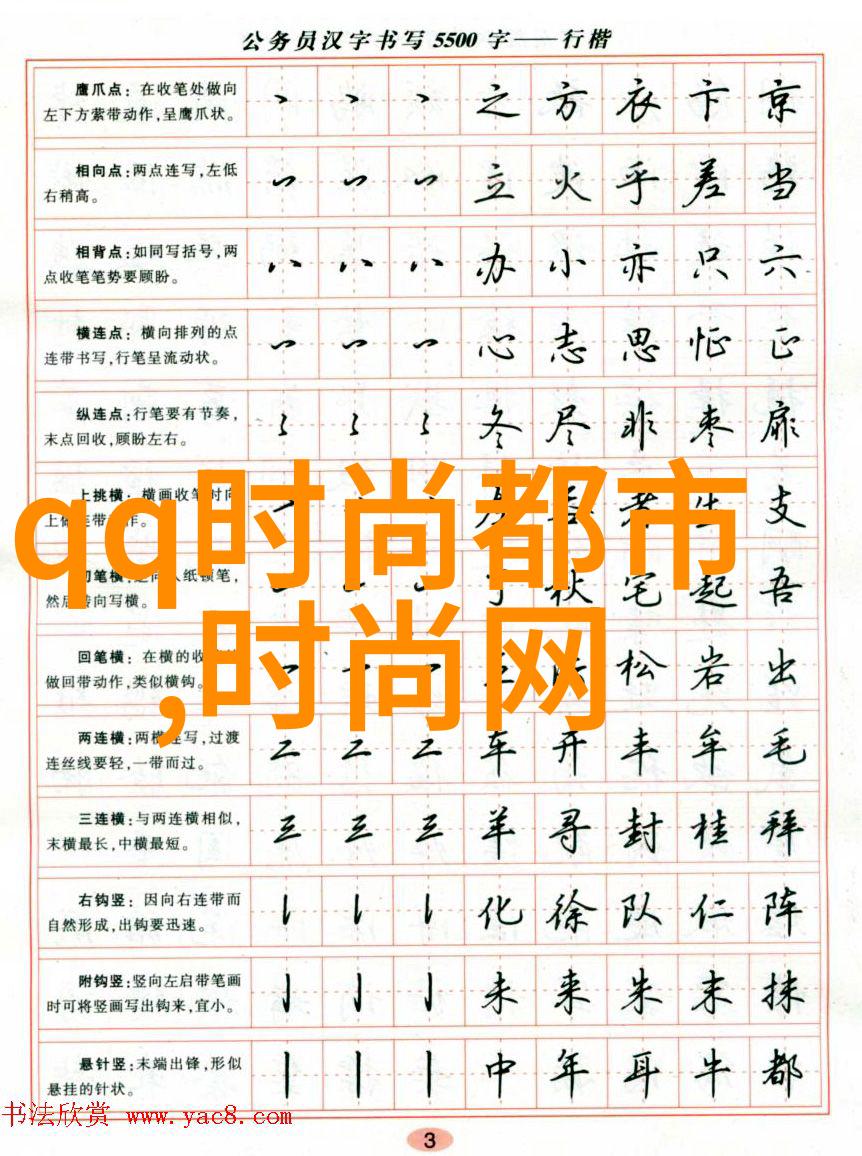 公务员汉字书写5500字——行楷
鹰爪点：在收笔处做向
左下方萦带动作，呈鹰爪状。
之 方 衣 卞 京
相向点：两点连写，左低
右稍高。
立 火 乎 差 当
相背点：如同写括号，两
点收笔笔势要顾盼。
办 小 亦 只 六
横连点：横向排列的点
连带书写，行笔呈流动状。
心 志 思 怔 正
纵连点：行笔要有节奏，
末点回收，顾盼左右。
冬 尽 非 枣 扉
上挑横：横画收笔时向
上做连带动作。
考 生 支
切笔横：逆向入纸顿笔，
然后转向写横。
秋 宅 起 吾
qq时尚都市
,时尚网
回笔横：在横的收
做回带动作，类似横钩。
松 岩 出
两连横：两横连写，过渡
连丝线要轻，一带而过。
车 开 丰 牟 毛
三连横：与两连横相似，
末横最长，中横最短。
羊 寻 封 桂 拜
右钩竖：因向右连带而
自然形成，出钩要迅速。
化 徐 队 仁 阵
附钩竖：竖向左启带笔画
时可将竖画写出钩来，宜小。
未 来 朱 末 抹
悬针竖：末端出锋，形似
悬挂的针状。
中 年 耳 牛 都
书法欣赏 www.yac8.com
3